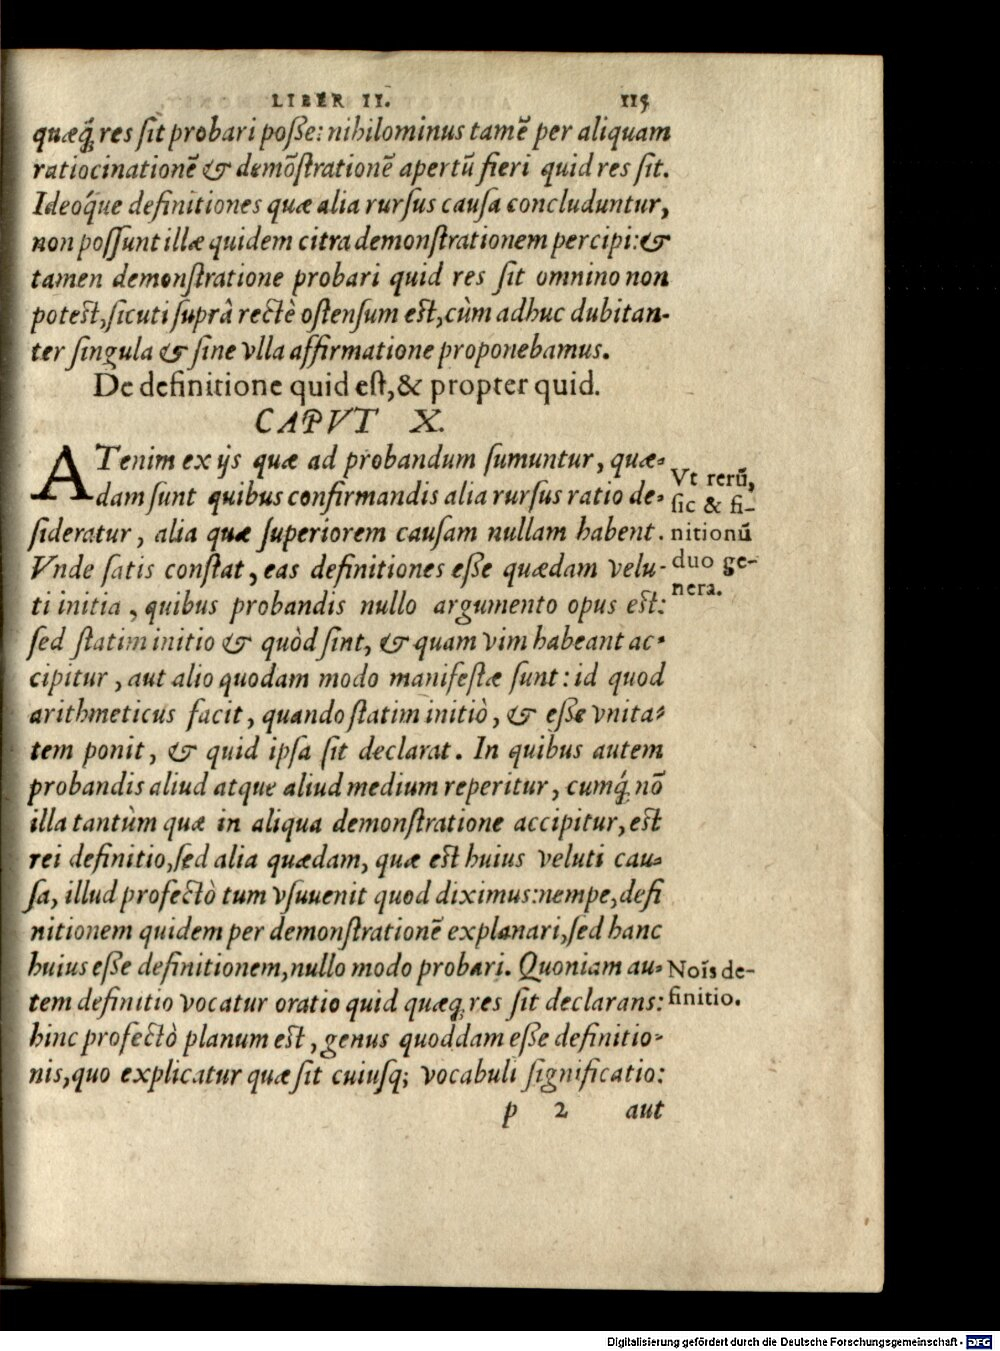 LIBER II. 115
quæq́; res ſit probari poſſe: nihilominus tamē per aliquam
ratiocinationē & demōſtrationē apertū fieri quid res ſit.
Ideoq́ue definitiones quæ alia rurſus cauſa concluduntur,
non poſſunt illæ quidem citra demonſtrationem percipi: &
tamen demonſtratione probari quid res ſit omnino non
poteſt, ſicuti ſuprâ rectè oſtenſum eſt, cùm adhuc dubitan-
ter ſingula & ſine vlla affirmatione proponebamus.
De definitione quid eſt, & propter quid.
CAPVT X.
ATenim ex ijs quæ ad probandum ſumuntur, quæ-
dam ſunt quibus confirmandis alia rurſus ratio de-
ſideratur, alia quæ ſuperiorem cauſam nullam habent.
Vnde ſatis conſtat, eas definitiones eſſe quædam velu-
ti initia, quibus probandis nullo argumento opus eſt:
ſed ſtatim initio & quòd ſint, & quam vim habeant ac-
cipitur, aut alio quodam modo manifeſtæ ſunt: id quod
arithmeticus facit, quando ſtatim initiò, & eſſe vnita-
tem ponit, & quid ipſa ſit declarat. In quibus autem
probandis aliud atque aliud medium reperitur, cumq́; nō
illa tantùm quæ in aliqua demonſtratione accipitur, eſt
rei definitio, ſed alia quædam, quæ eſt huius veluti cau-
ſa, illud profectò tum vſuuenit quod diximus: nempe, defi
nitionem quidem per demonſtrationē explanari, ſed hanc
huius eſſe definitionem, nullo modo probari. Quoniam au-
tem definitio vocatur oratio quid quæq; res ſit declarans:
hinc profectò planum eſt, genus quoddam eſſe definitio-
nis, quo explicatur quæ ſit cuiuſq; vocabuli ſignificatio:
p 2 aut
Vt rerū,
ſic & fi-
nitionū
duo ge-
nera.
Noīs de-
finitio.
Digitalisierung gefördert durch die Deutsche Forschungsgemeinschaft - DFG